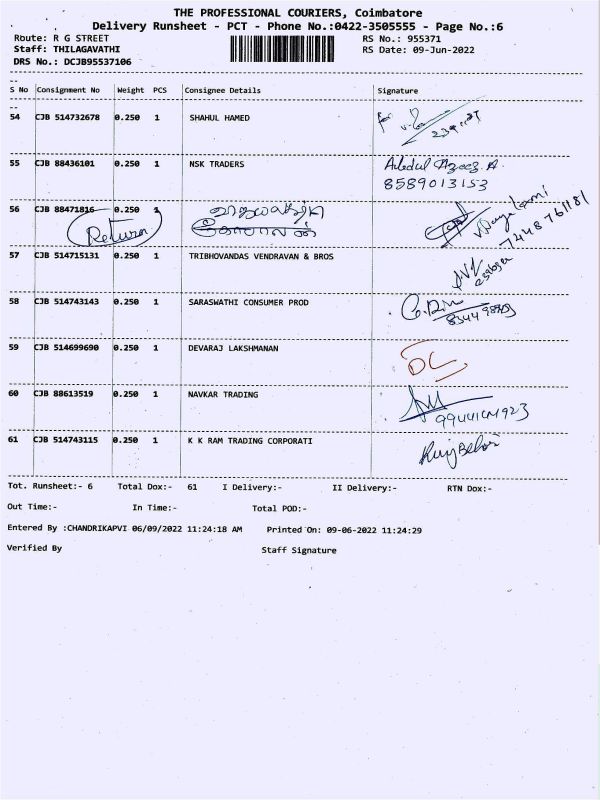 THE PROFESSIONAL COURIERS, Coimbatore
Delivery Runsheet - PCT - Phone No.:0422-3505555 - Page No.:6
Route: R G STREET RS No.: 955371
Staff: THILAGAVATHI RS Date: 09-Jun-2022
DRS No.: DCJB95537106
S No Consignment No Weight PCS Consignee Details Signature
54 CJB 514732678 0.250 1 SHAHUL HAMED
55 CJB 88436101 0.250 1 NSK TRADERS Abdul Azeez.A.
8589013153
56 CJB 88471816 0.250 1
Return 7448761181
57 CJB 514715131 0.250 1 TRIBHOVANDAS VENDRAVAN & BROS
58 CJB 514743143 0.250 1 SARASWATHI CONSUMER PROD
59 CJB 514699690 0.250 1 DEVARAJ LAKSHMANAN DC
60 CJB 88613519 0.250 1 NAVKAR TRADING
61 CJB 514743115 0.250 1 K K RAM TRADING CORPORATI
Tot. Runsheet:- 6 Total Dox:- 61 I Delivery:- II Delivery:- RTN Dox:-
Out Time:- In Time:- Total POD:-
Entered By :CHANDRIKAPVI 06/09/2022 11:24:18 AM Printed On: 09-06-2022 11:24:29
Verified By Staff Signature